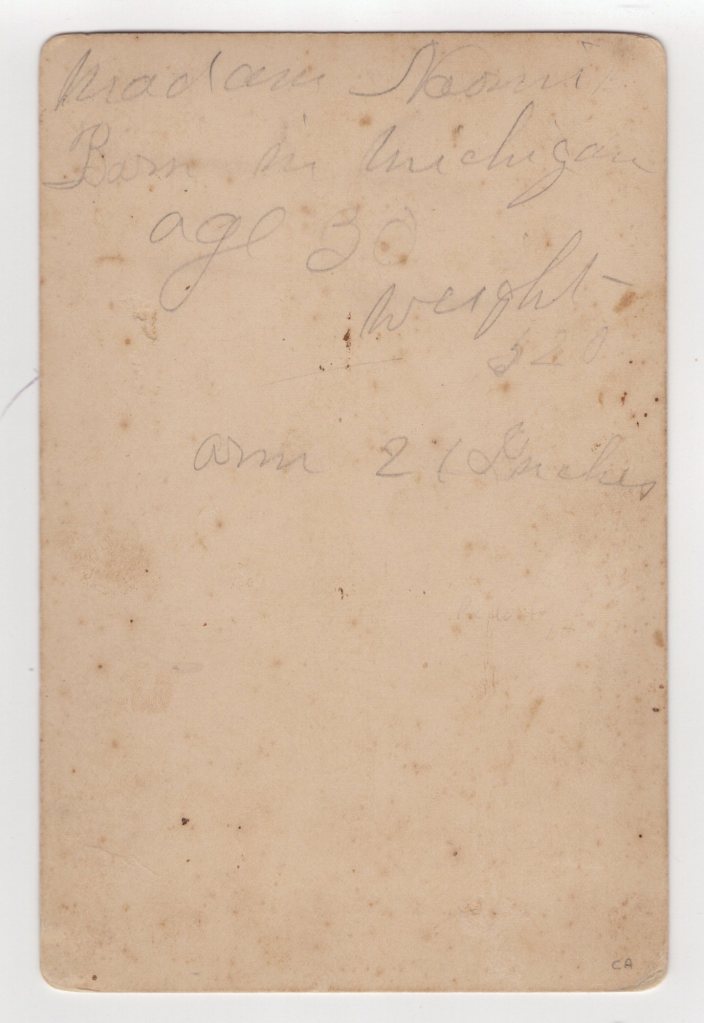 Madam Naomi
Born in Michigan
age 30
weight
520
arm 21 Inches
CA